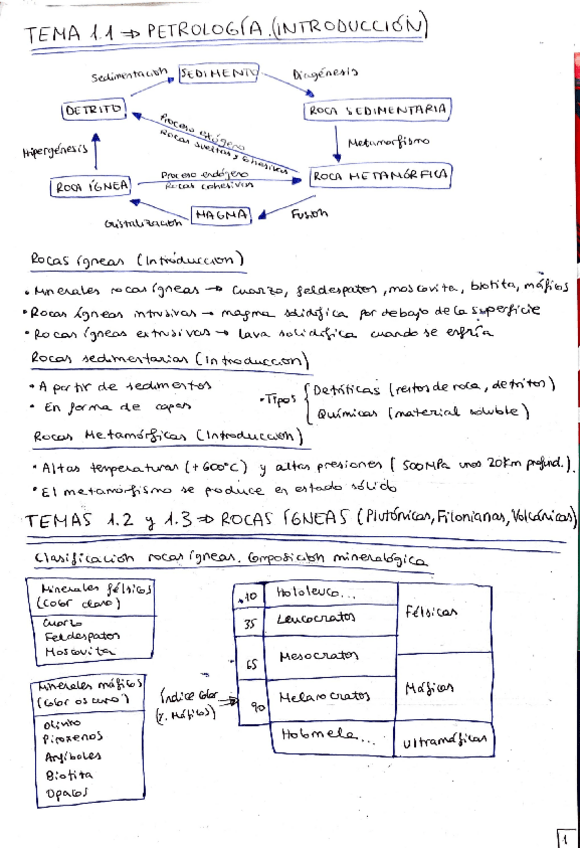 TEMA 1.1 ⇒ PETROLOGÍA.(INTRODUCCIÓN)
Sedimentación SEDIMENTO Diagénesis
DETRITO ROCA SEDIMENTARIA
Proceso exógeno
Rocas sueltas y cohesivas
Hipergénesis Metamorfismo
Proceso endógeno
ROCA ÍGNEA Rocas cohesivas ROCA METAMÓRFICA
Cristalización MAGMA Fusión
Rocas ígneas (Introducción)
• Minerales rocas ígneas → Cuarzo, feldespatos, moscovita, biotita, máficos
• Rocas ígneas intrusivas → magma solidifica por debajo de la superficie
• Rocas ígneas extrusivas → lava solidifica cuando se enfría
Rocas sedimentarias (Introducción)
• A partir de sedimentos
• En forma de capas
• Tipos { Detríticas (restos de roca, detritos)
Químicas (material soluble)
Rocas Metamórficas (Introducción)
• Altas temperaturas (+600°C) y altas presiones (500MPa unos 20Km profund.)
• El metamorfismo se produce en estado sólido
TEMAS 1.2 y 1.3 ⇒ ROCAS ÍGNEAS (Plutónicas, Filonianas, Volcánicas)
Clasificación rocas ígneas. Composición mineralógica
Minerales félsicos
(Color claro)
Cuarzo
Feldespatos
Moscovita
Minerales máficos
(Color oscuro)
Olivino
Piroxenos
Anfíboles
Biotita
Opacos
Índice color ⇒
(% Máficos)
10 Hololeuco...
35 Leucocratos Félsicas
65 Mesocratos
90 Melanocratos Máficas
Holomela... Ultramáficas
1